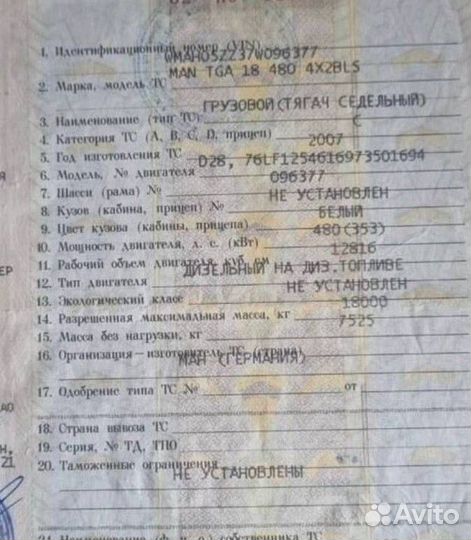 1. Идентификационный номер (VIN) WMAH05ZZ37W096377
2. Марка, модель ТС MAN TGA 18 480 4X2BLS
3. Наименование (тип ТС) ГРУЗОВОЙ(ТЯГАЧ СЕДЕЛЬНЫЙ)
4. Категория ТС (А, В, С, D, прицеп) С
5. Год изготовления ТС 2007
6. Модель, № двигателя D28, 76LF1254616973501694
7. Шасси (рама) № 096377
8. Кузов (кабина, прицеп) № НЕ УСТАНОВЛЕН
9. Цвет кузова (кабины, прицепа) БЕЛЫЙ
10. Мощность двигателя, л. с. (кВт) 480(353)
11. Рабочий объем двигателя, куб. см 12816
12. Тип двигателя ДИЗЕЛЬНЫЙ НА ДИЗ.ТОПЛИВЕ
13. Экологический класс НЕ УСТАНОВЛЕН
14. Разрешенная максимальная масса, кг 18000
15. Масса без нагрузки, кг 7525
16. Организация—изготовитель ТС (страна) МАН (ГЕРМАНИЯ)
17. Одобрение типа ТС № от
18. Страна вывоза ТС
19. Серия, № ТД, ТПО
20. Таможенные ограничения НЕ УСТАНОВЛЕНЫ
21. Наименование (ф. и. о.) собственника ТС
ЕР
АО
Н,
21
Avito